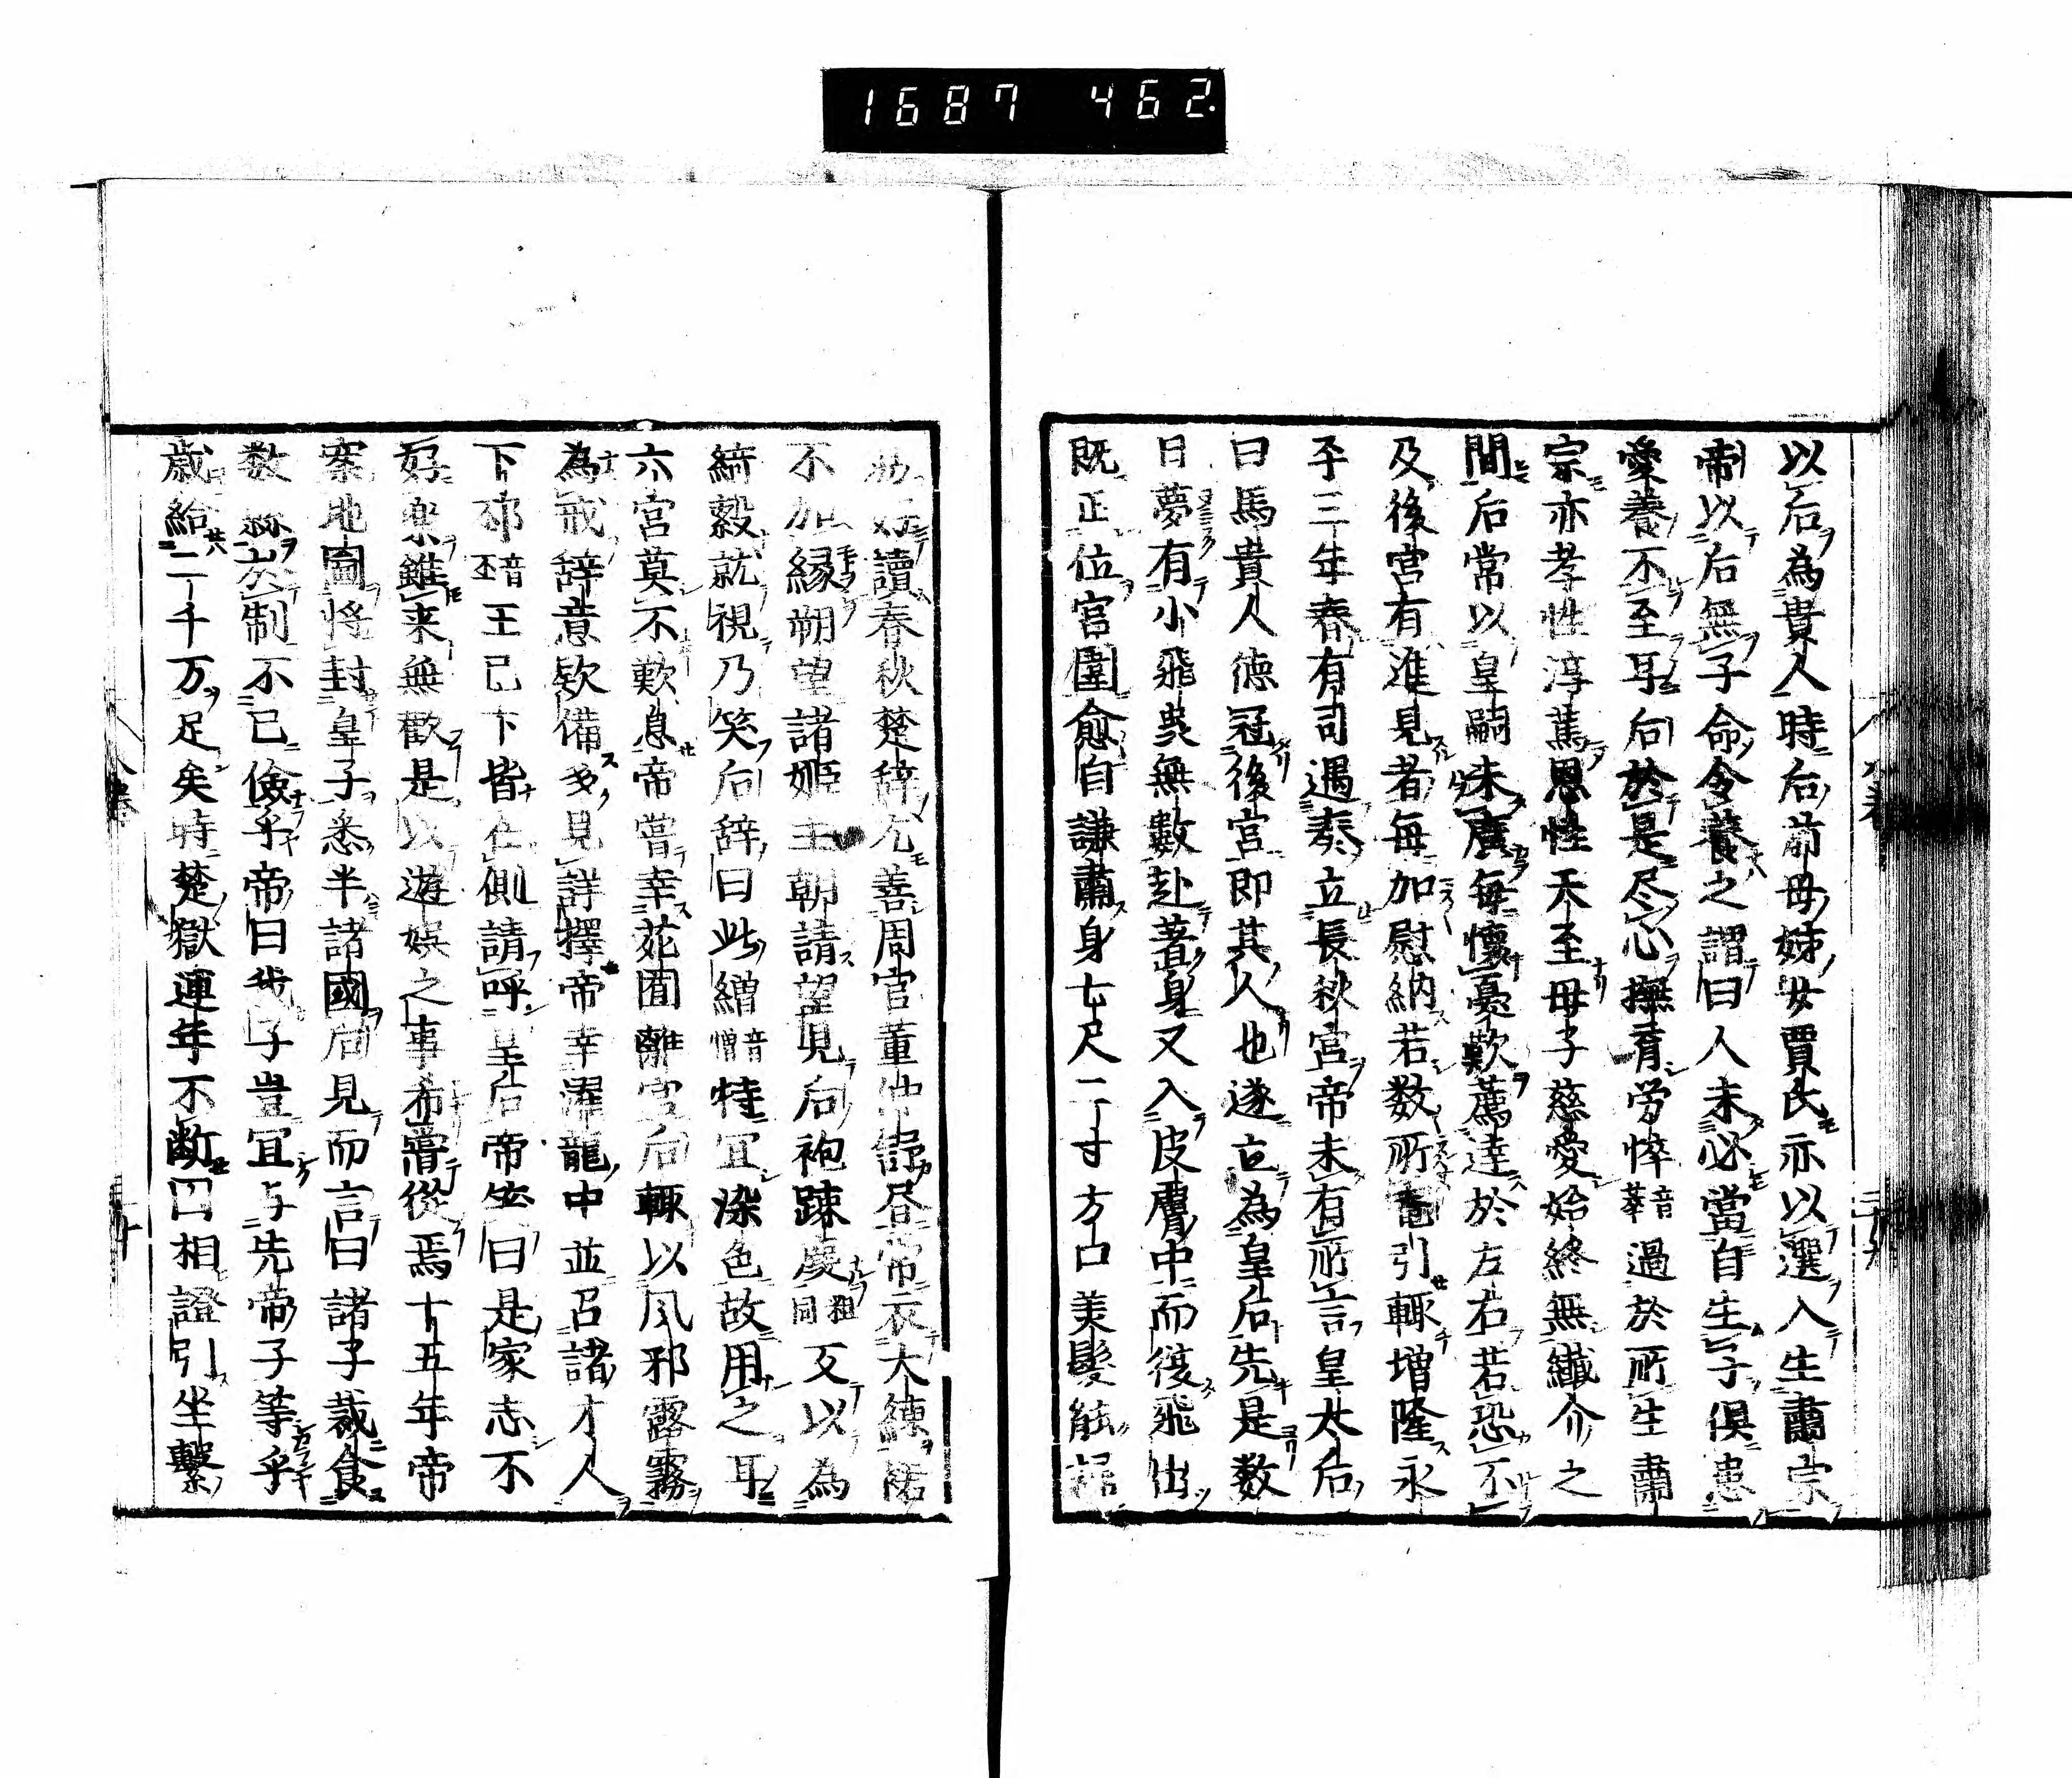 1687 462.
以后為貴人時后前母姊女賈氏亦以選入生肅宗
帝以后無子命令養之謂曰人未必當自生子俱患
愛養不至耳向於是尽心撫育労悴音萃過於所生肅
宗亦孝性淳篤恩性天至母子慈愛始終無纎介之
間后常以皇嗣未廣毎懐憂歎薦達於左右若恐不
及後宮有進見者毎加慰納若数所寵引輙増隆永
平三年春有司遇奏立長秋宮帝未有所言皇太后
曰馬貴人徳冠後宮即其人也遂立為皇后先是数
日夢有小飛虫無數赴著身又入皮膚中而復飛出
既正位宮闈愈自謙肅身七尺二寸方口美髪能
好讀春秋楚辞尤善周官董仲舒昼常衣大練裙
不加縁朔望諸姫主朝請望見后袍踈麁粗同又以為
綺縠就視乃笑后辞曰此繒音憎特宜染色故用之耳
六宮莫不歎息帝嘗幸苑囿離宮后輙以風邪露霧
為戒辞意欵備多見詳擇帝幸濯龍中並召諸才人
下邳音丕王已下皆在側請呼皇后帝笑曰是家志不
好楽雖来無歡是以遊娯之事希嘗從焉十五年帝
案地圖将封皇子悉半諸國后見而言曰諸子裁食
数縣於制不已儉乎帝曰我子豈宜与先帝子等乎
歳給二千万足矣時楚獄連年不断囚相證引坐繋